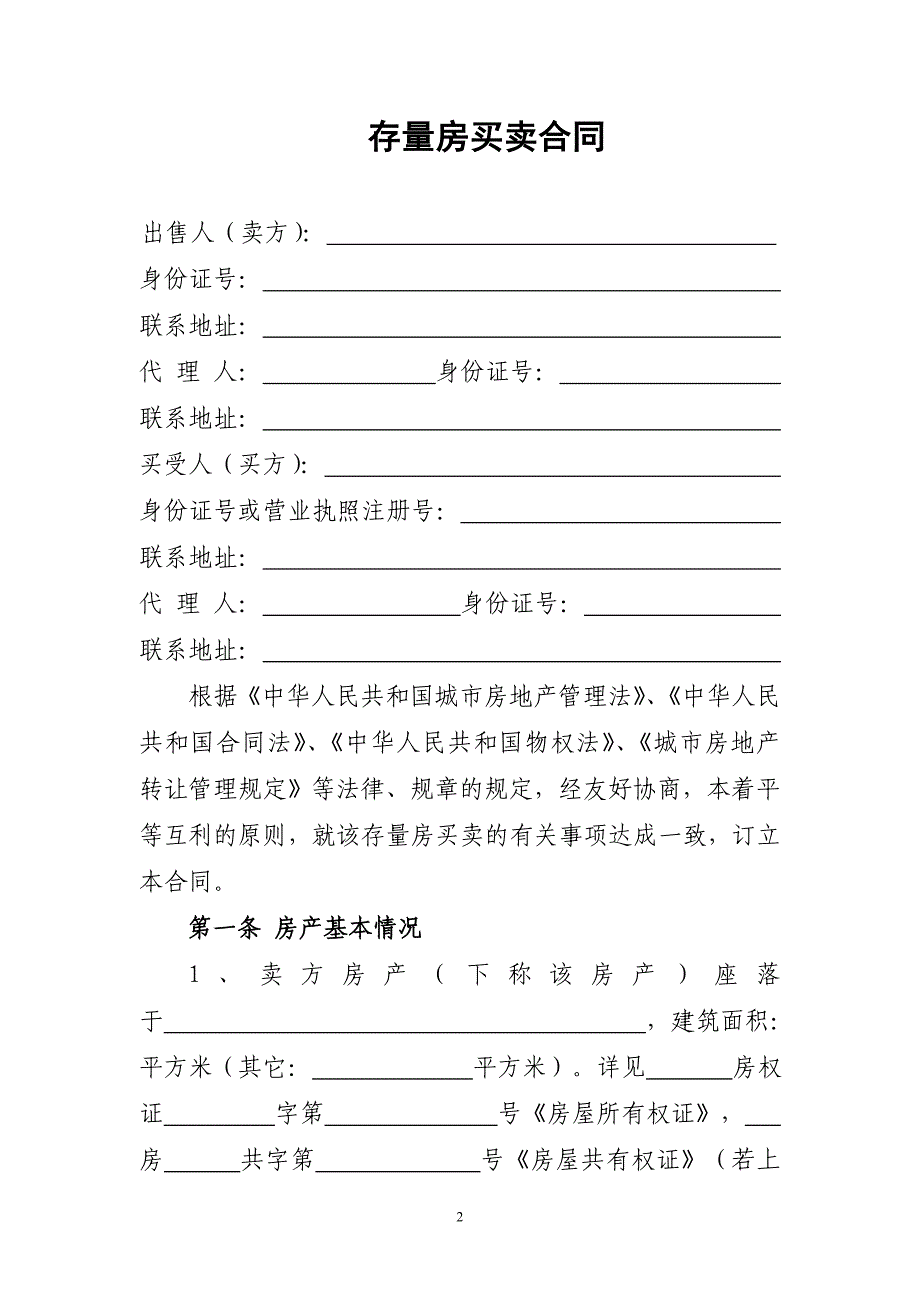 存量房买卖合同
出售人（卖方）：____________________
身份证号：____________________
联系地址：____________________
代 理 人：______________身份证号：__________________
联系地址：____________________
买受人（买方）：____________________
身份证号或营业执照注册号：____________________
联系地址：____________________
代 理 人：________________身份证号：________________
联系地址：____________________
根据《中华人民共和国城市房地产管理法》、《中华人民
共和国合同法》、《中华人民共和国物权法》、《城市房地产
转让管理规定》等法律、规章的规定，经友好协商，本着平
等互利的原则，就该存量房买卖的有关事项达成一致，订立
本合同。
第一条 房产基本情况
1、卖方房产（下称该房产）座落
于____________________，建筑面积：
平方米（其它：_____________平方米）。详见_______房权
证_________字第______________号《房屋所有权证》，___
房______共字第_____________号《房屋共有权证》（若上
2